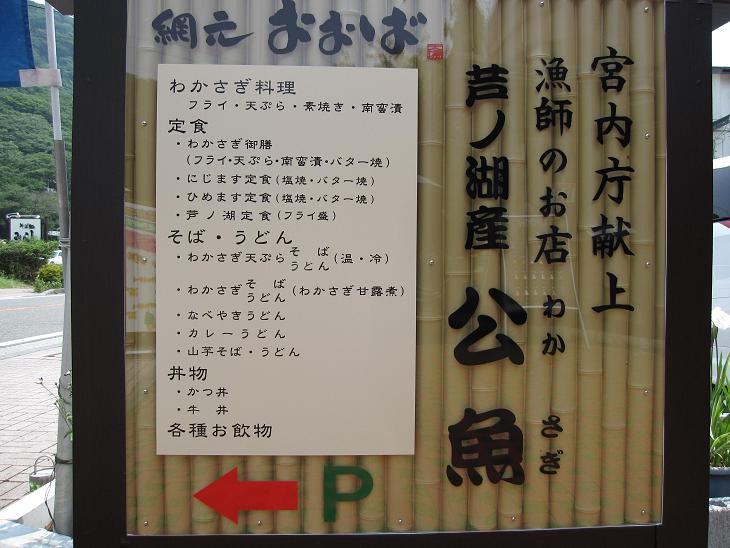 網元 おおば
宮内庁献上
漁師のお店
わか さぎ
芦ノ湖産 公魚
わかさぎ料理
フライ・天ぷら・素焼き・南蛮漬
定食
・わかさぎ御膳
(フライ・天ぷら・南蛮漬・バター焼)
・にじます定食(塩焼・バター焼)
・ひめます定食(塩焼・バター焼)
・芦ノ湖定食(フライ盛)
そば・うどん
・わかさぎ天ぷら そば うどん (温・冷)
・わかさぎ そば うどん (わかさぎ甘露煮)
・なべやきうどん
・カレーうどん
・山芋そば・うどん
丼物
・かつ丼
・牛 丼
各種お飲物
P